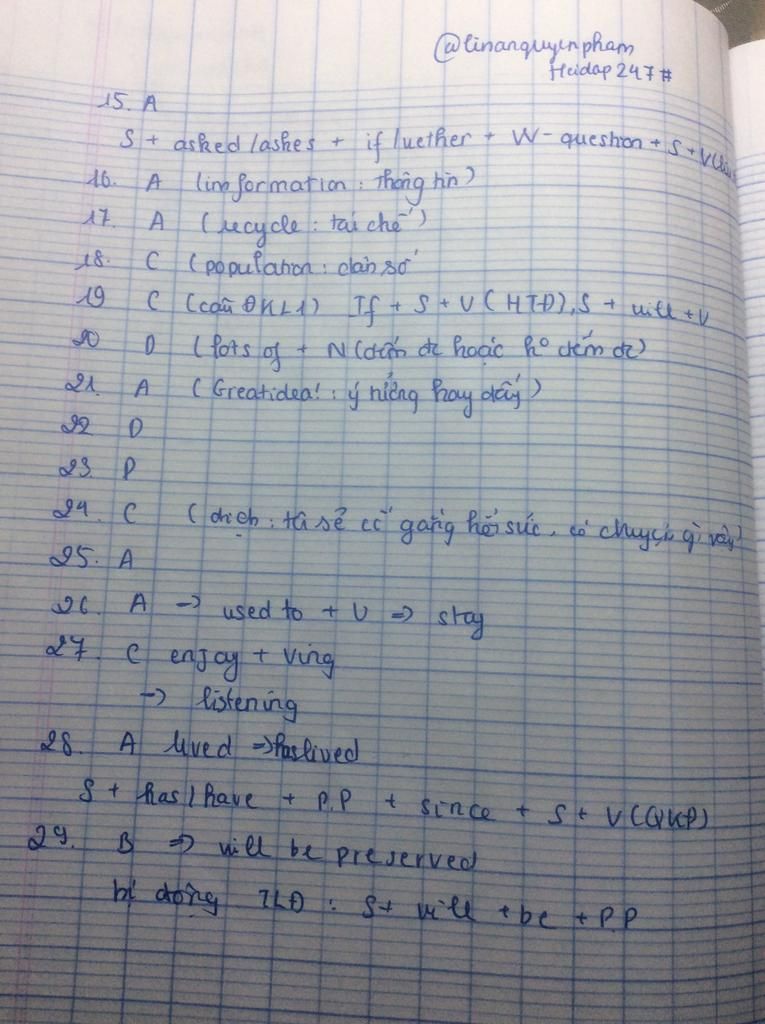 @linanquyenpham
Heidap247#
15. A
S + asked/ashes + if/wether + W-question + S + V(lùi
16. A (imformation: thông tin)
17. A (recycle: tái chế)
18. C (population: dân số
19 C (câu ĐKL1) If + S + V(HTĐ), S + will + V
20 D (lots of + N(đếm đc hoặc ko đếm đc)
21. A (Great idea!: ý tưởng hay đấy)
22 D
23. D
24. C (dịch: tôi sẽ cố gắng hết sức, có chuyện gì vậy?
25. A
26. A → used to + V => stay
27. C enjoy + Ving
→ listening
28. A lived => has lived
S + has/have + P.P + since + S + V(QKĐ)
29. B => will be preserved
bị động TLĐ: S + will + be + P.P